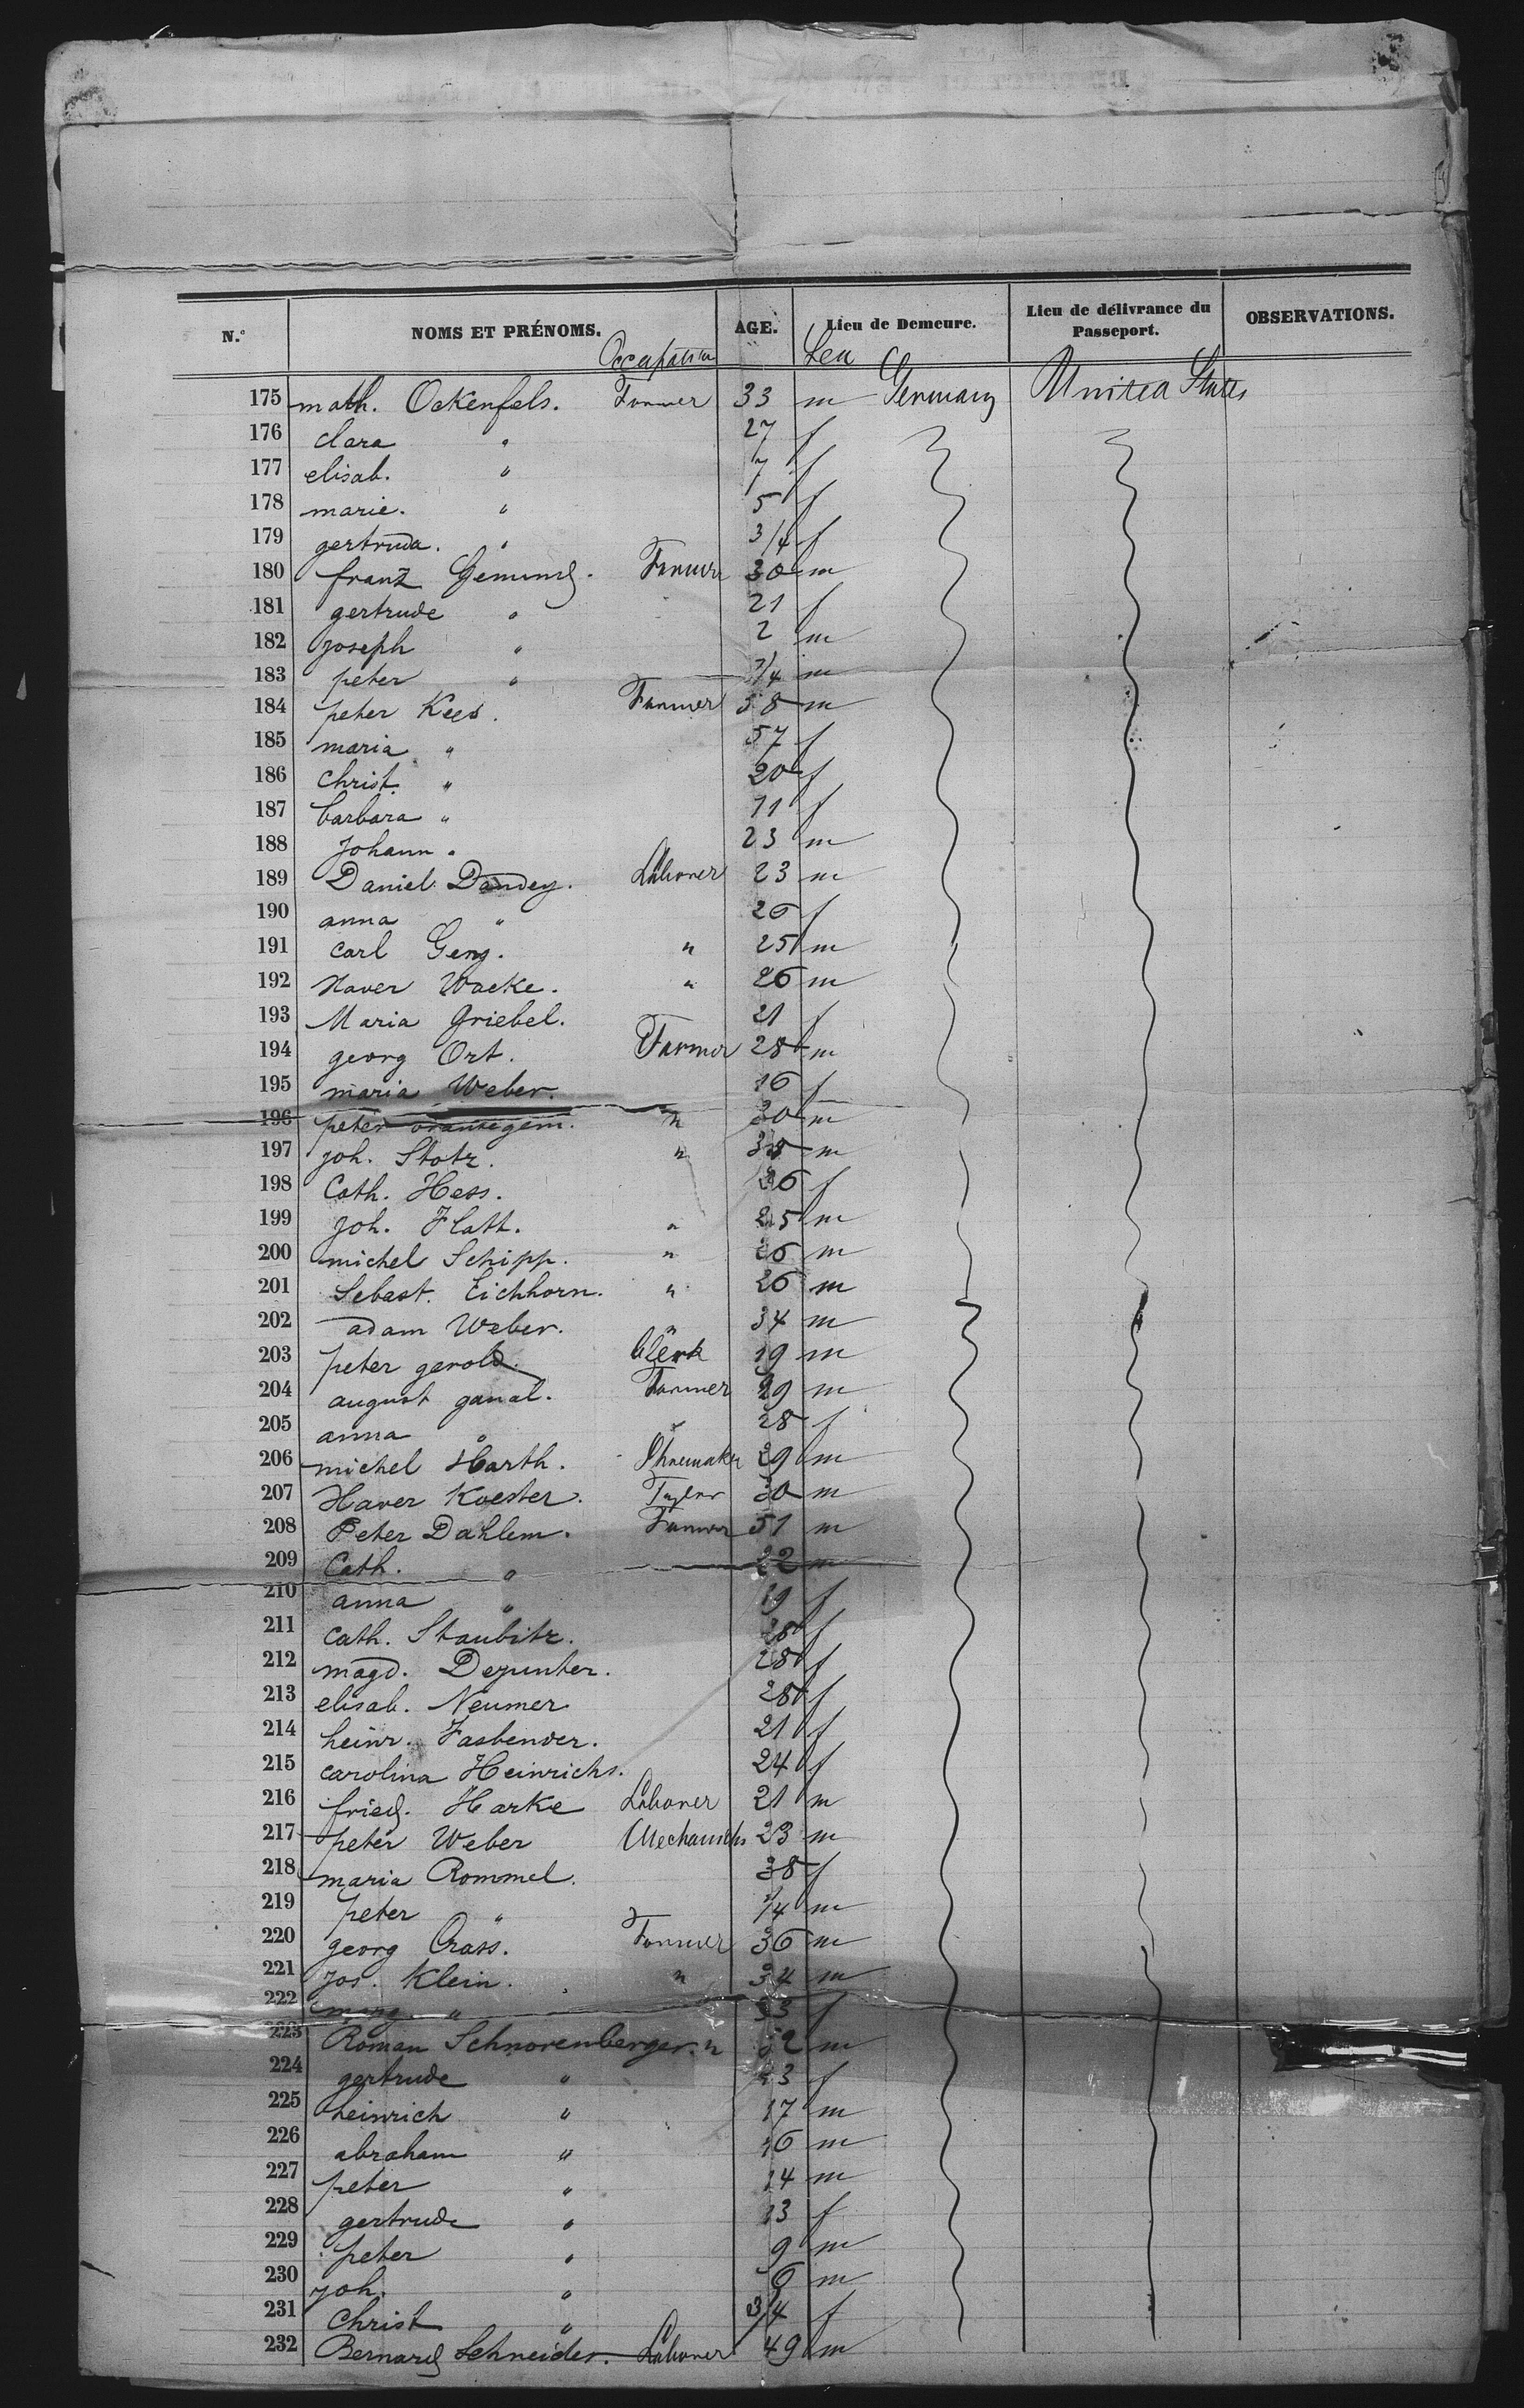 N.° NOMS ET PRÉNOMS. AGE. Lieu de Demeure. Lieu de délivrance du Passeport. OBSERVATIONS.
Occupation
175 math. Ockenfels. Farmer 33 m Germany United States
176 clara " 27 f
177 elisab. " 7 f
178 marie. " 5 f
179 gertruda. " 3/4 f
180 franz Gemund. Farmer 30 m
181 gertrude " 21 f
182 joseph " 2 m
183 peter " 3/4 m
184 peter Kees. Farmer 58 m
185 maria " 57 f
186 Christ. " 20 f
187 barbara " 11 f
188 Johann " 23 m
189 Daniel Dandey. Laborer 23 m
190 anna " 26 f
191 carl Geng. " 25 m
192 Xaver Wacke. " 26 m
193 Maria Griebel. 21 f
194 georg Ort. Farmer 28 m
195 maria Weber. 16 f
196 peter " 30 m
197 joh. Stotz. " m
198 Cath. Hess. 26 f
199 joh. Flath. " 25 m
200 michel Schipp. " 26 m
201 Sebast. Eichhorn. " 26 m
202 adam Weber. " 34 m
203 peter gerold. Clerk 19 m
204 august ganal. Farmer 29 m
205 anna " 28 f
206 michel Harth. Shoemaker 29 m
207 Xaver Koester. Taylor 30 m
208 Peter Dahlem. Farmer 51 m
209 Cath. " 22 m
210 anna " 19 f
211 Cath. Staubitz. 28 f
212 magd. Dezunter. 28 f
213 elisab. Neumer 28 f
214 heinr. Fasbender. 21 f
215 carolina Heinrichs. 24 f
216 fried. Harke Laborer 21 m
217 peter Weber 23 m
218 maria Rommel. 38 f
219 peter " m
220 georg Crass. Farmer 36 m
221 jos. Klein. " 34 m
222 marg. " 33 f
223 Roman Schnorenberger. " 52 m
224 gertrude " 43 f
225 heinrich " 17 m
226 abraham " 16 m
227 peter " 14 m
228 gertrude " 13 f
229 peter " 9 m
230 joh. " 6 m
231 Christ " 3/4 f
232 Bernard Schneider. Laborer 49 m